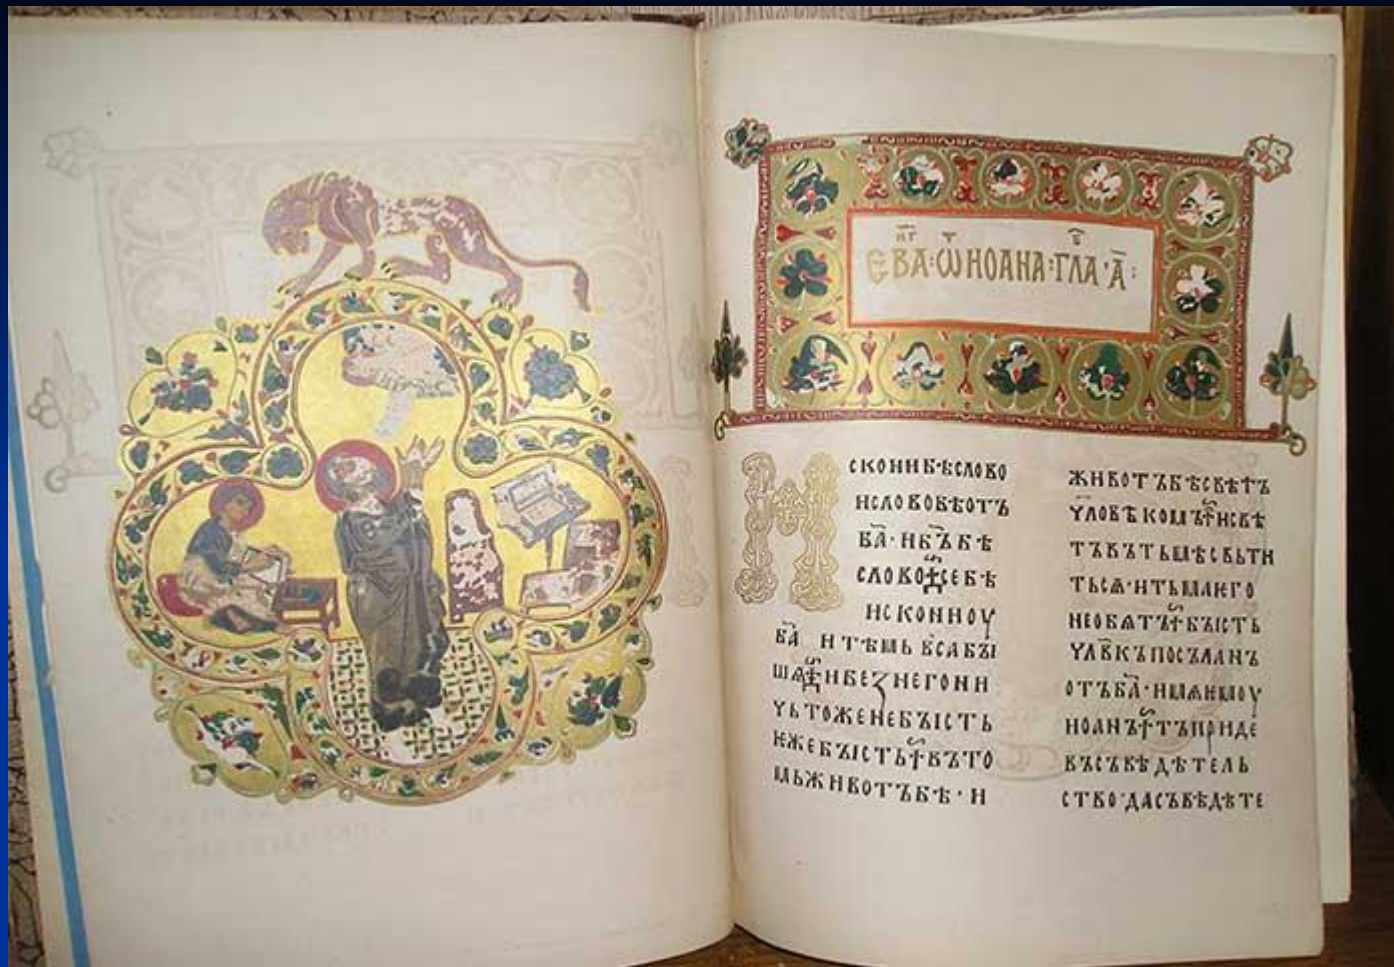 ЕВА҃·Ѿ ИОАНА·ГЛА·А҃:
ИСКОНИБѢСЛОВО
ИСЛОВОБѢОТЪ
БА҃·ИБЪ҃БѢ
СЛОВО СЕБѢ
ИСКОНИОУ
БА҃ ИТѢМЬВЬСАБЫ
ШѦ ИБЕЗНЕГОНИ
ЧЬТОЖЕНЕБЫСТЬ
ѤЖЕБЫСТЬ ВЪТО
МЬЖИВОТЪБѢ·И
ЖИВОТЪБѢСВѢТЪ
ЧЛОВѢКОМЪ ИСВѢ
ТЪВЪТЬМѢСВЬТИ
ТЬСѦ·ИТЬМАѤГО
НЕОБѦТЪ БЫСТЬ
ЧЛ҃ВКЪПОСЪЛАНЪ
ОТЪБА҃·ИМѦѤМОУ
ИОАНЪ ТЪПРИДЕ
ВЪСЪВѢДѢТЕЛЬ
СТВО·ДАСЪВѢДѢТЕ